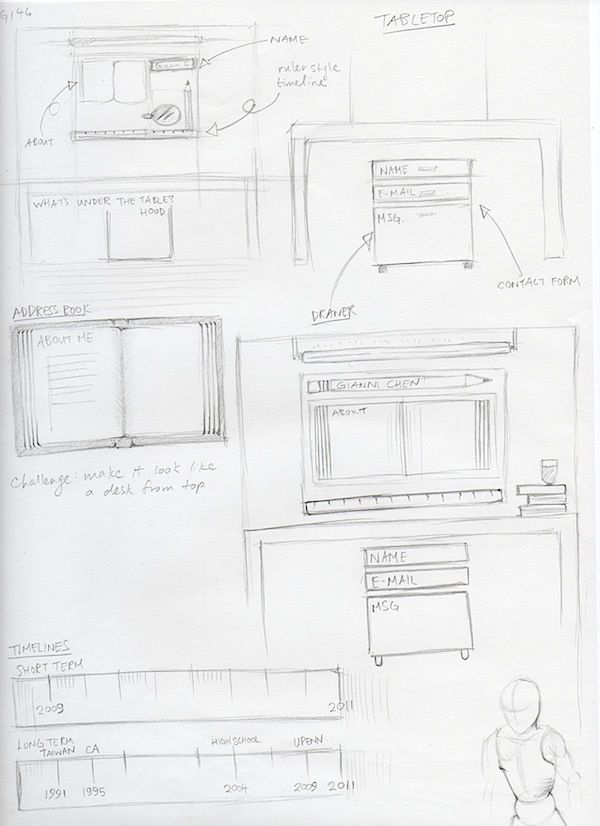 G146
TABLETOP
NAME
Gianni C
ruler style
timeline
ABOUT
WHAT'S UNDER THE TABLE?
HOOD
NAME
E-MAIL
MSG.
CONTACT FORM
DRAWER
ADDRESS BOOK
ABOUT ME
GIANNI CHEN
ABOUT
Challenge: make it look like
a desk from top.
NAME
E-MAIL
MSG
TIMELINES
SHORT TERM
2009 2011
LONG TERM
TAIWAN CA HIGHSCHOOL UPENN
1991 1995 2004 2009 2011